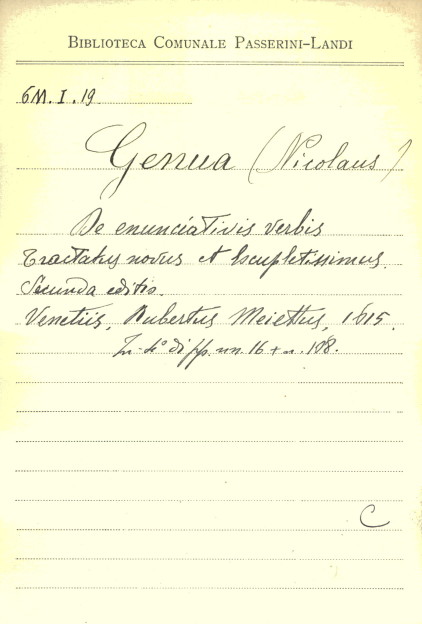 BIBLIOTECA COMUNALE PASSERINI-LANDI
6M. I. 19
Genua (Nicolaus)
De enunciativis verbis
Tractatus novus et locupletissimus.
Secunda editio.
Venetiis, Rubertus Meiettus, 1615.
In-4° di pp. nn. 16 + n. 108.
C